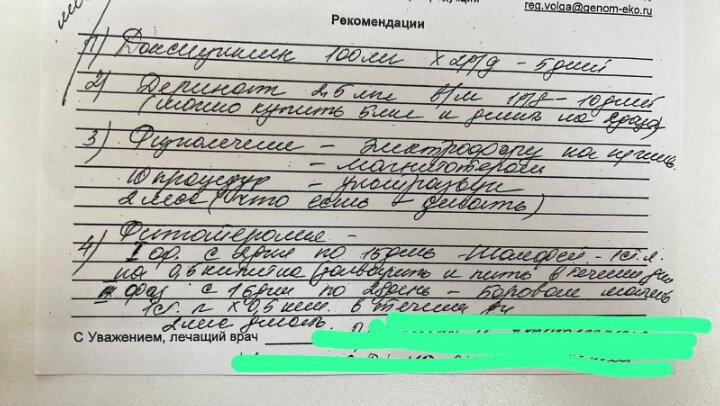 reg.volga@genom-eko.ru
Рекомендации
1) Доксициклин 100мг х 2р/д - 5 дней
2) Деринат 2,5 мл в/м 1р/д - 10 дней
(можно купить 5мл и делить на 2 раза)
3) Физиолечение - электрофорез на
- магнитотерапия
10 процедур - ультразвук
2 мес (кто есть - делать)
4) Фитотерапия -
I фаз. с 5 дня по 15 день - Шалфей - 1 ст.л.
на 0,5 кипятка заварить и пить в течении дня
II фаза с 16 дня по 25 день - Боровая матка
1 ст. л х 0,5 кип. в течении
2 мес
С Уважением, лечащий врач